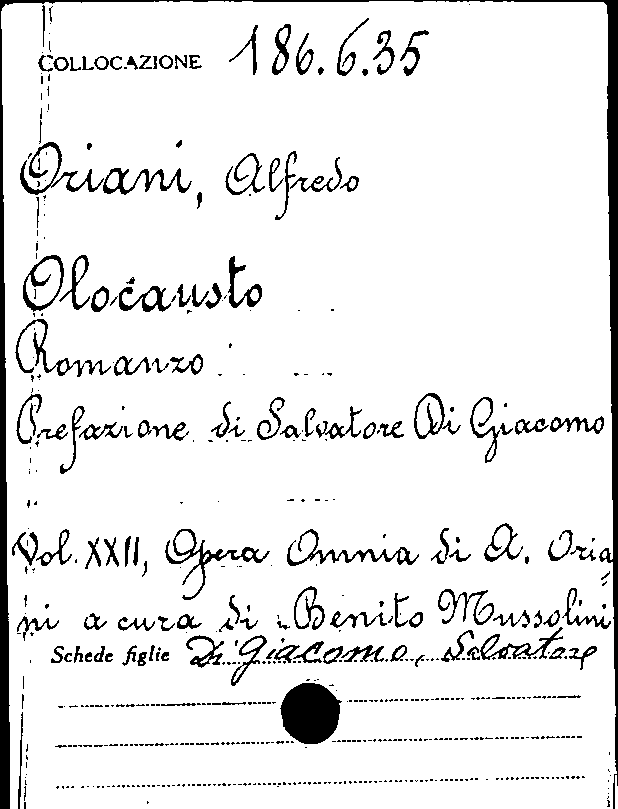 COLLOCAZIONE 186.6.35
Oriani, Alfredo
Olocausto
Romanzo
Prefazione di Salvatore Di Giacomo
Vol. XXII, Opera Omnia di A. Oria=
ni a cura di Benito Mussolini
Schede figlie Di Giacomo, Salvatore